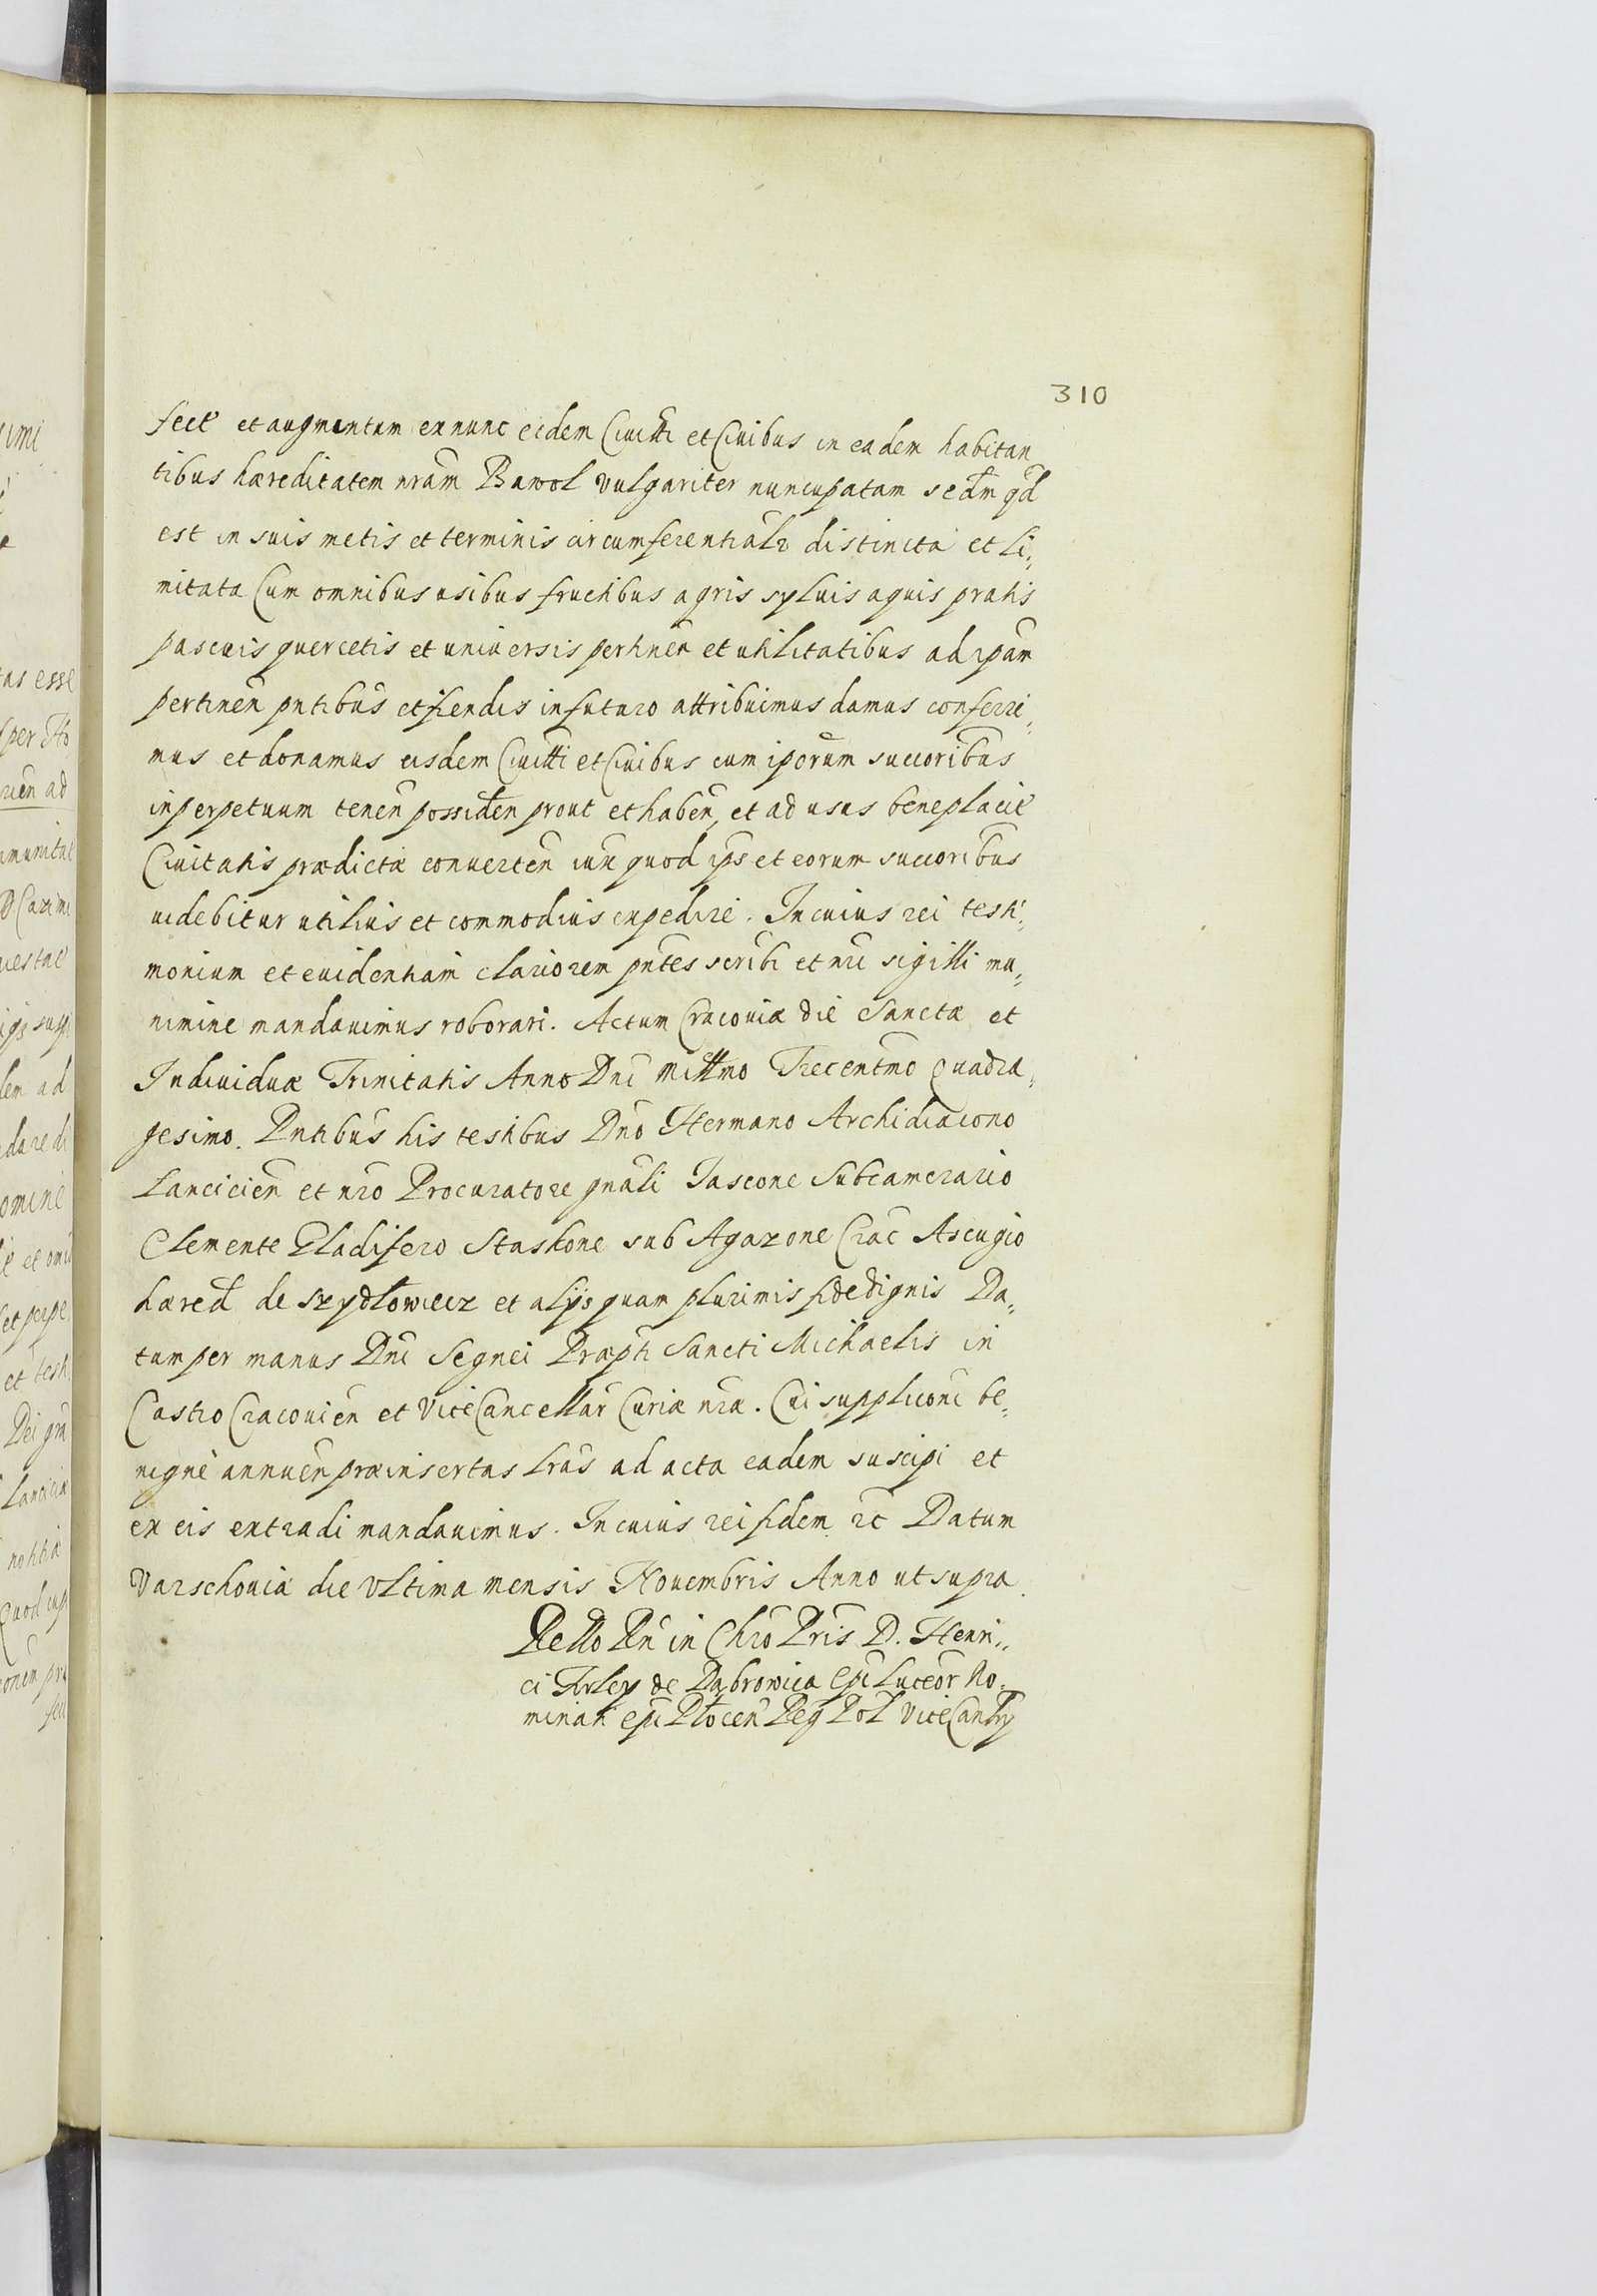 310
fect et augmentum ex nunc eidem Ciuitti et Ciuibus in eadem habitan
tibus hæreditatem nram Bawol vulgariter nuncupatam secdm qd
est in suis metis et terminis circumferentialr distincta et li„
mitata Cum omnibus usibus fructibus agris syluis aquis pratis
pascuis quercetis et uniuersis pertinen et utilitatibus ad ipam
pertinen pntibus et fiendis in futuro attribuimus damus conferri„
mus et donamus eisdem Ciuitti et Ciuibus cum iporum succoribus
in perpetuum tenen possiden prout et haben, et ad usus beneplacit
Ciuitatis prædictæ conuerten iux quod ips et eorum succoribus
uidebitur utilius et commodius expedire. In cuius rei testi„
monium et euidentiam clariorem pntes scribi et nri sigilli mu„
nimine mandauimus roborari. Actum Cracouiæ die Sanctæ et
Indiuiduæ Trinitatis Anno Dni Millmo Trecentmo Quadra„
gesimo. Pntibus his testibus Dno Hermano Archidiacono
Lancicien et nro Procuratore gnali Jascone Subcamerario
Clemente Gladifero Staskone sub Agazone Crac Ascugio
hæred de Szydłowiecz et alijs quam plurimis fidedignis Da„
tum per manus Dni Segnei Præpti Sancti Michaelis in
Castro Cracouien et ViceCancellar Curiæ nræ. Cui supplicôni be„
nigne annuen præinsertas lras ad acta eadem suscipi et
ex eis extradi mandauimus. In cuius rei fidem rc Datum
Varschouiæ die Vltima mensis Nouembris Anno ut supra.
Rello Rn in Chro Pris D. Henri„
ci Firley de Dąbrowica Epi Luceor No„
minati epi Plocen Reg Pol ViceCanlry